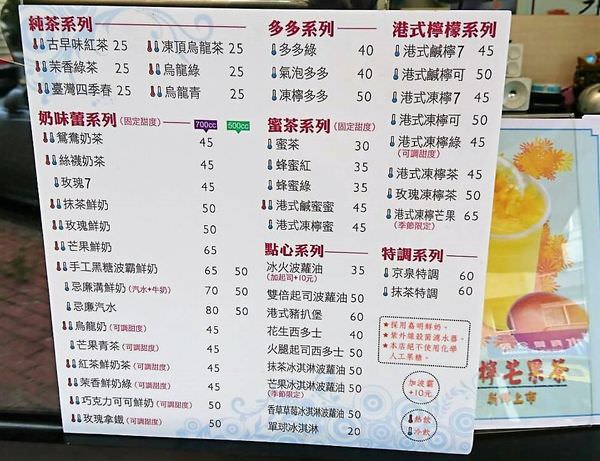 純茶系列
古早味紅茶 25 凍頂烏龍茶 25
茉香綠茶 25 烏龍綠 25
臺灣四季春 25 烏龍青 25
奶味蕾系列(固定甜度) 700cc 500cc
鴛鴦奶茶 45
絲襪奶茶 45
玫瑰7 45
抹茶鮮奶 50
玫瑰鮮奶 50
芒果鮮奶 65
手工黑糖波霸鮮奶 65 50
忌廉溝鮮奶(汽水+牛奶) 70 50
忌廉汽水 80 50
烏龍奶(可調甜度) 45
芒果青茶(可調甜度) 45
紅茶鮮奶茶(可調甜度) 45
茉香鮮奶綠(可調甜度) 45
巧克力可可鮮奶(可調甜度) 50
玫瑰拿鐵(可調甜度) 50
多多系列
多多綠 40
氣泡多多 40
凍檸多多 50
蜜茶系列(固定甜度)
蜜茶 30
蜂蜜紅 35
蜂蜜綠 35
港式鹹檸蜜 45
港式凍檸蜜 45
點心系列
冰火波蘿油 35
(加起司+10元)
雙倍起司波蘿油 50
港式豬扒堡 60
花生西多士 40
火腿起司西多士 50
抹茶冰淇淋波蘿油 50
芒果冰淇淋波蘿油 50
(季節限定)
香草草莓冰淇淋波蘿油 50
單球冰淇淋 20
港式檸檬系列
港式鹹檸7 45
港式鹹檸可 50
港式凍檸7 45
港式凍檸可 50
港式凍檸綠 45
(可調甜度)
港式凍檸茶 45
玫瑰凍檸茶 50
港式凍檸芒果 65
(季節限定)
特調系列
京泉特調 60
抹茶特調 60
★採用嘉明鮮奶。
★紫外線殺菌濾水器。
★本店絕不使用化學
人工果糖。
加波霸
+10元
熱飲
冷飲
檸芒果茶
新鮮上市